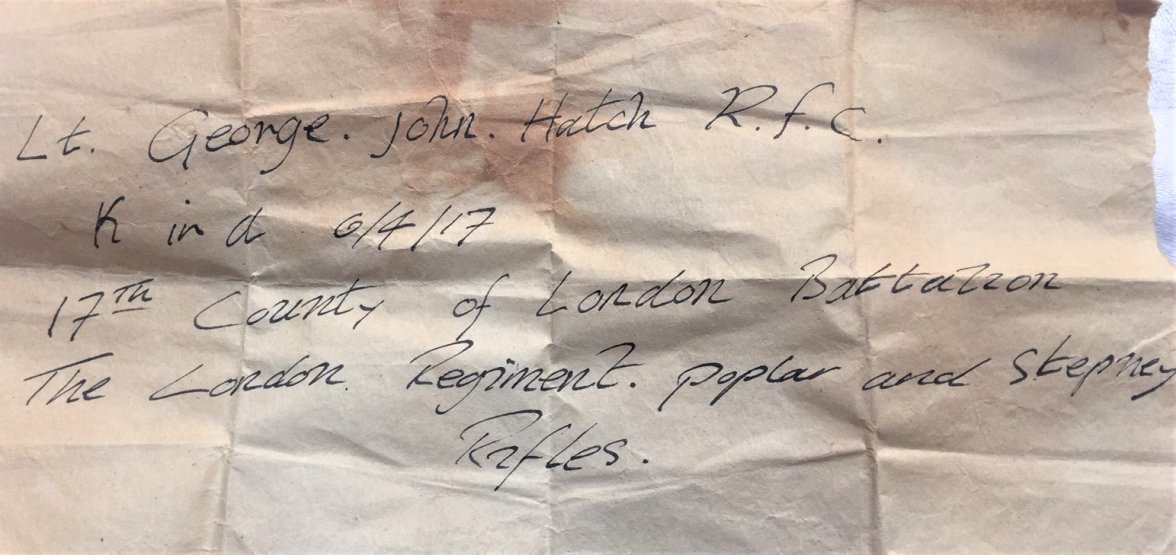 Lt. George. John. Hatch R.f.C.
K in d 6/4/17
17TH County of London Battalion
The London Regiment. Poplar and Stepney
Rifles.